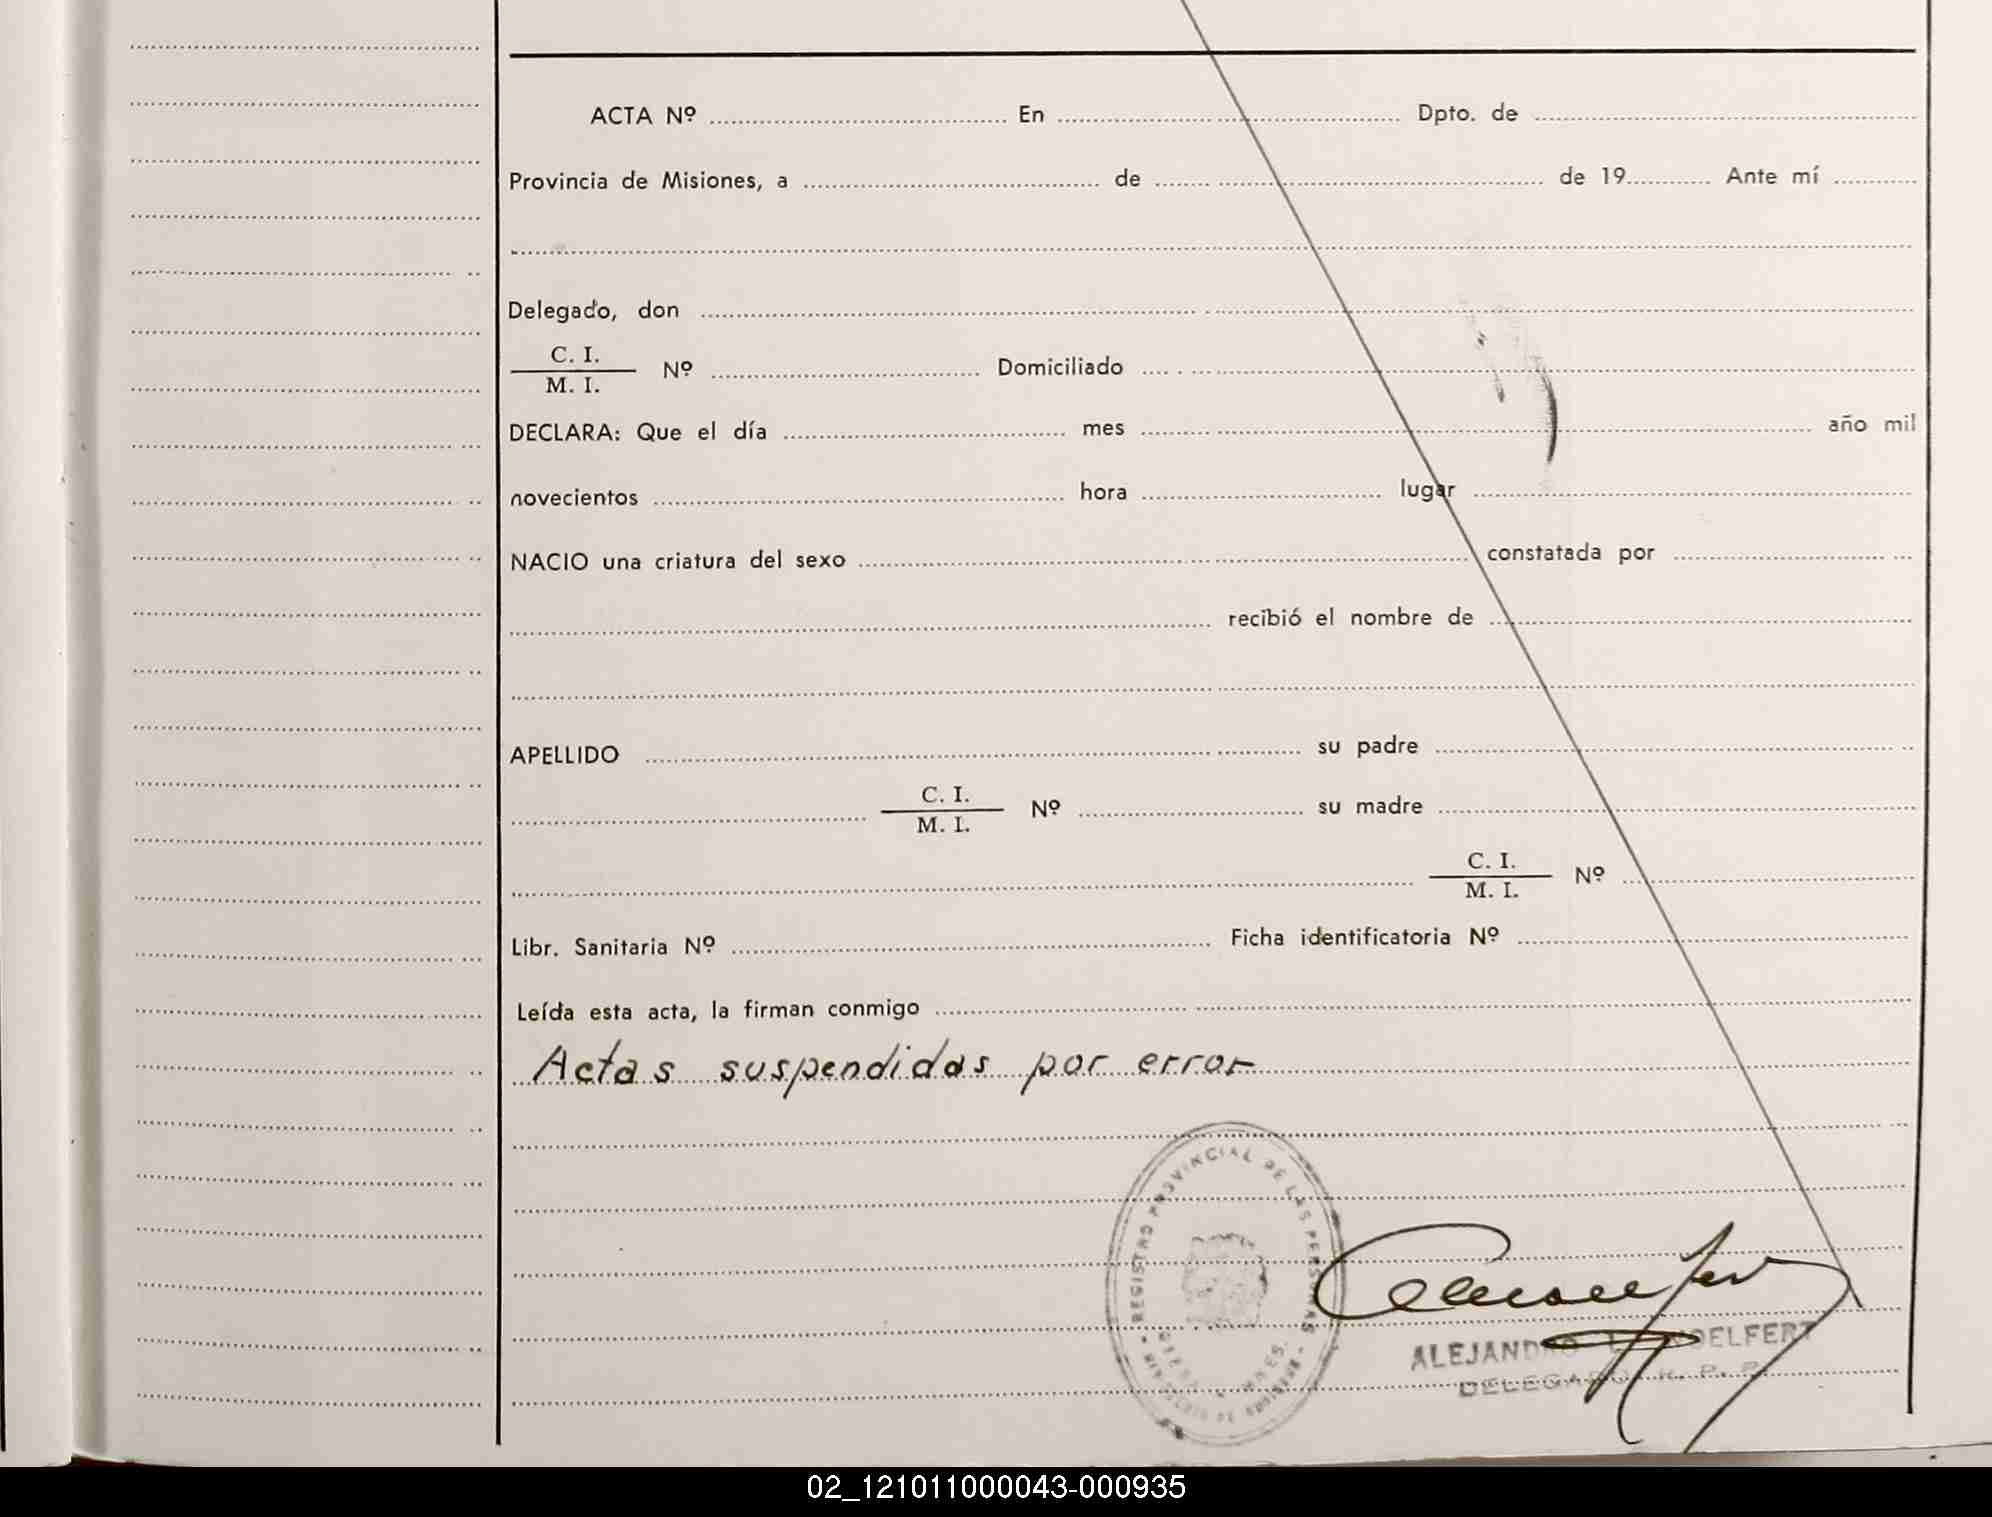 ACTA Nº ........ En ........ Dpto. de ........
Provincia de Misiones, a ........ de ........ de 19........ Ante mí ........
Delegado, don ........
C. I.
M. I. Nº ........ Domiciliado ........
DECLARA: Que el día ........ mes ........ año mil
novecientos ........ hora ........ lugar ........
NACIO una criatura del sexo ........ constatada por ........
recibió el nombre de ........
APELLIDO ........ su padre ........
C. I.
M. I. Nº ........ su madre ........
C. I.
M. I. Nº ........
Libr. Sanitaria Nº ........ Ficha identificatoria Nº ........
Leída esta acta, la firman conmigo ........
Actas suspendidas por error
REGISTRO PROVINCIAL DE LAS PERSONAS
ALEJANDRO
DELEGADO R. P. P.
02_121011000043-000935